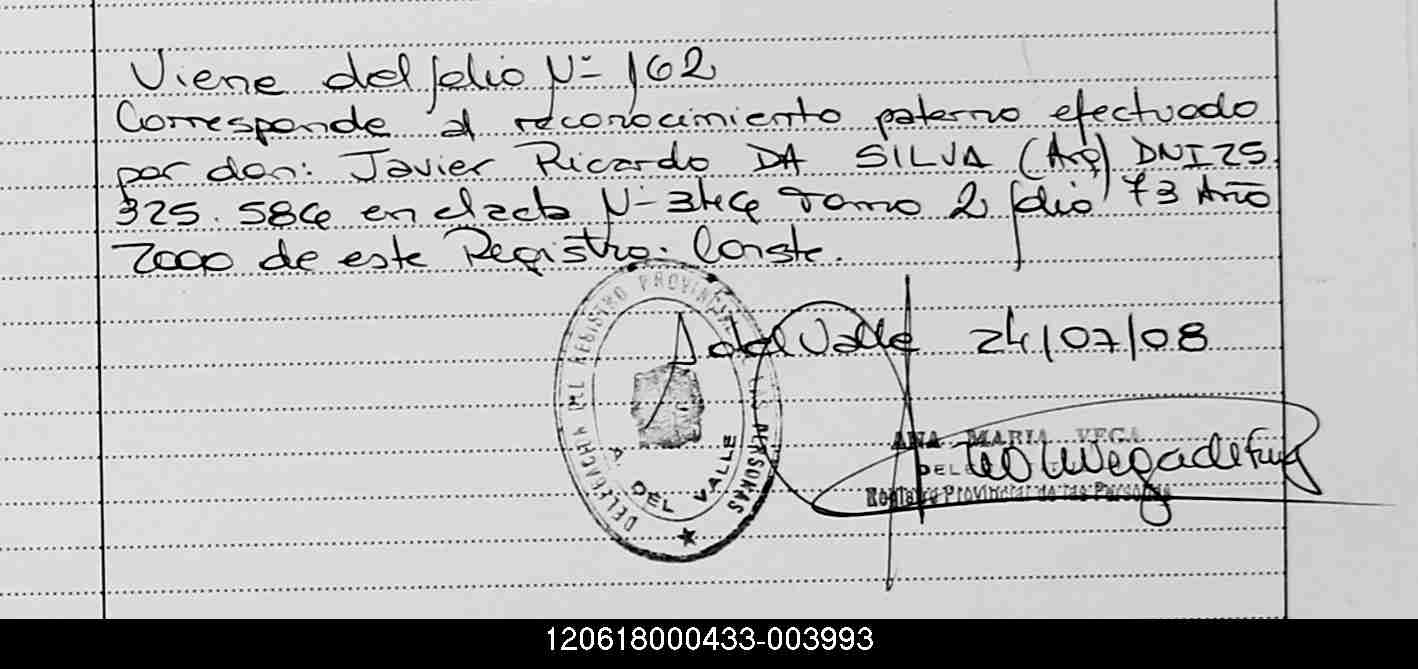 Viene del folio Nº 162
Corresponde al reconocimiento paterno efectuado
por don: Javier Ricardo DA SILVA (Arg) DNI 25.
325.586 en el acta Nº 346 Tomo 2 folio 73 Año
2000 de este Registro. Conste.
A del Valle 24/07/08
DELEGACION DEL REGISTRO PROVINCIAL DE LAS PERSONAS
A. DEL VALLE
ANA MARIA VEGA
Registro Provincial de las Personas
120618000433-003993